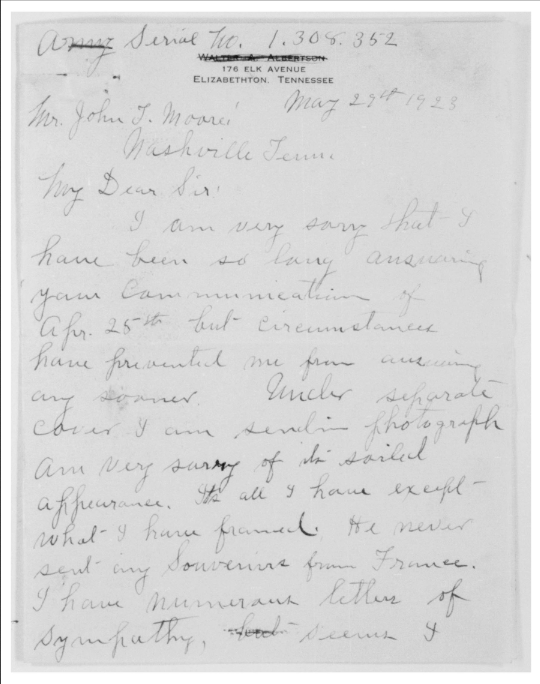 Army Serial No. 1.308.352
Walter A. Albertson
176 Elk Avenue
Elizabethton, Tennessee
May 29th 1923
Mr. John T. Moore:
Nashville Tenn.
My Dear Sir:
I am very sorry that I
have been so long answering
your Communication of
Apr. 25th but circumstances
have prevented me from answering
any sooner. Under separate
cover I am sendin photograph
am very sorry of its soiled
appearance. Its all I have except
what I have framed. He never
sent any Souvenirs from France.
I have numerous letters of
Sympathy, but seems I